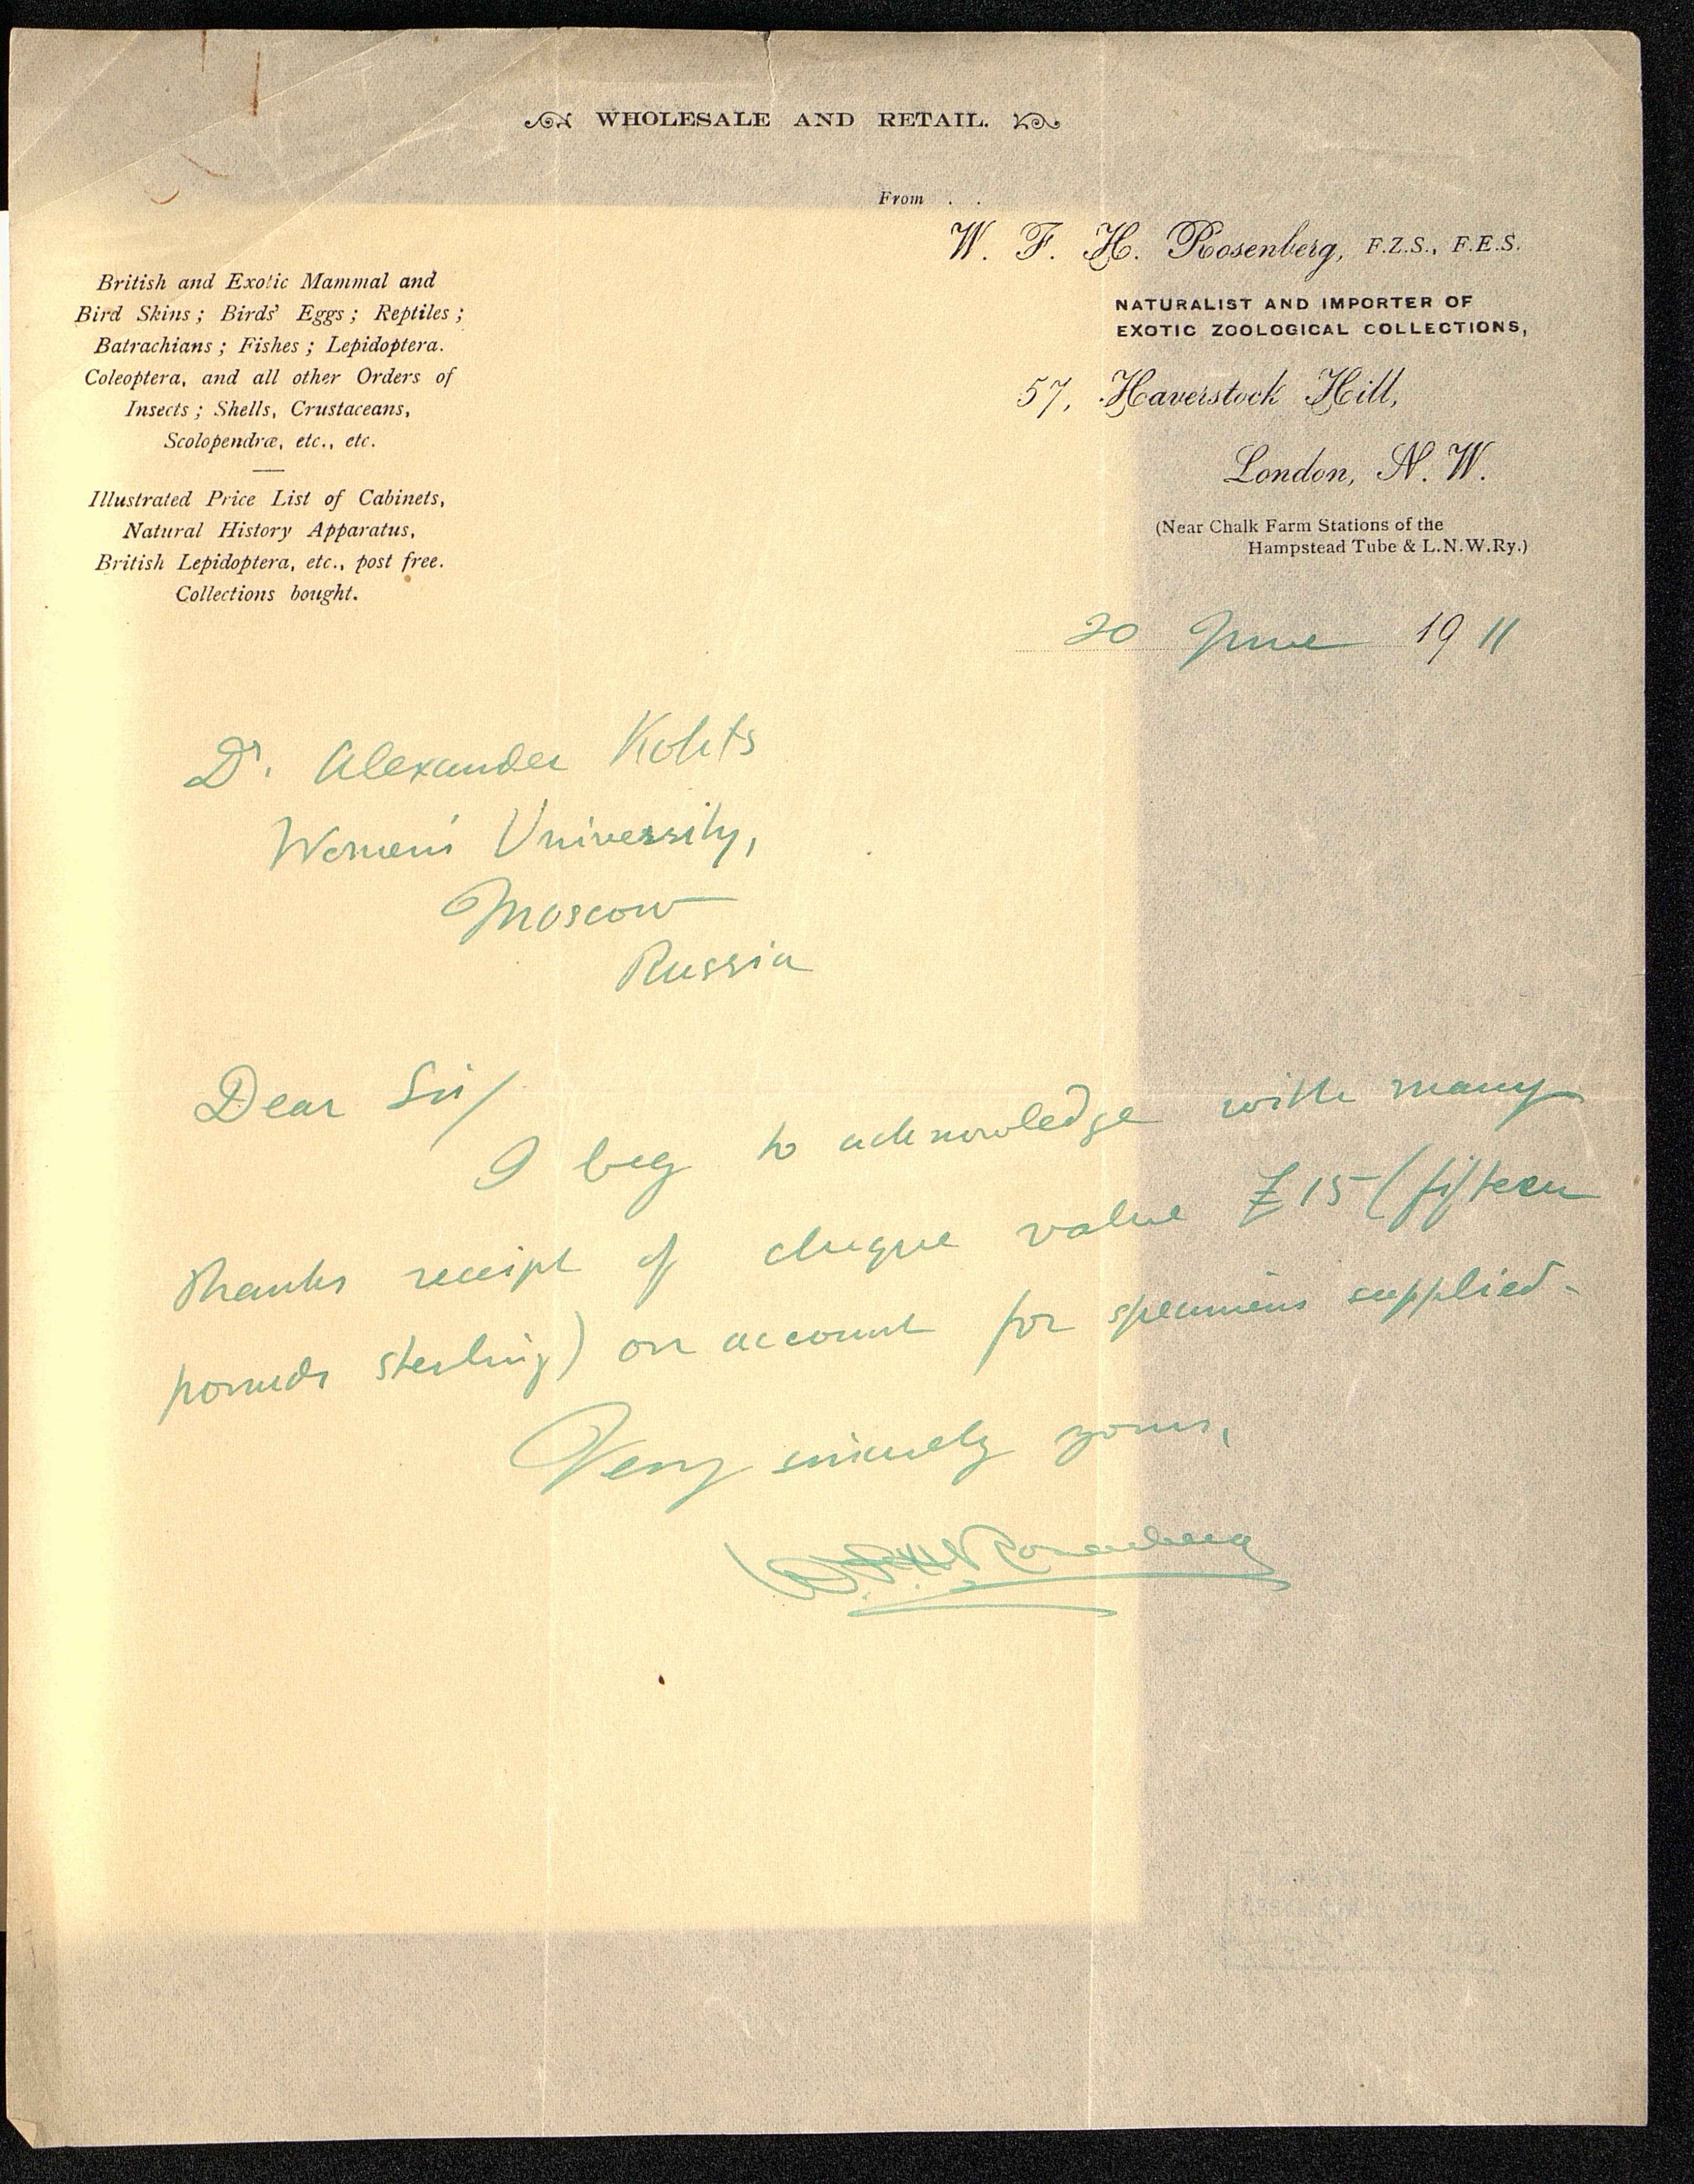 WHOLESALE AND RETAIL.
From . .
W. F. H. Rosenberg, F.Z.S., F.E.S.
NATURALIST AND IMPORTER OF
EXOTIC ZOOLOGICAL COLLECTIONS,
57, Haverstock Hill,
London, N. W.
(Near Chalk Farm Stations of the
Hampstead Tube & L.N.W.Ry.)
British and Exotic Mammal and
Bird Skins; Birds' Eggs; Reptiles;
Batrachians; Fishes; Lepidoptera.
Coleoptera, and all other Orders of
Insects; Shells, Crustaceans,
Scolopendræ, etc., etc.
Illustrated Price List of Cabinets,
Natural History Apparatus,
British Lepidoptera, etc., post free.
Collections bought.
20 June 1911
Dr. Alexander Kohts
Women's University,
Moscow
Russia
Dear Sir/
I beg to acknowledge with many
thanks receipt of cheque value £15 (fifteen
pounds sterling) on account for specimens supplied.
Very sincerely yours,
W.F.H. Rosenberg